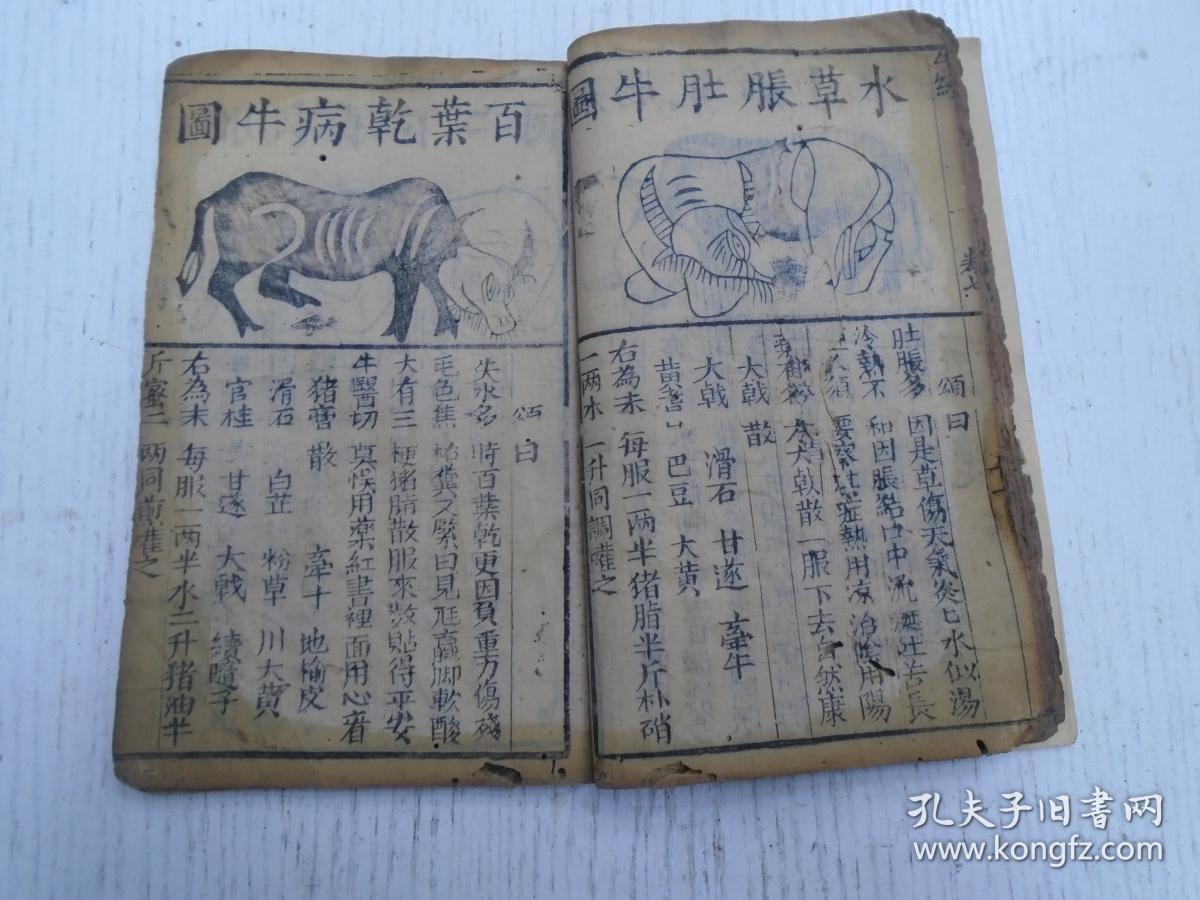 水草脹肚牛圖
頌曰
肚脹多因是草傷天氣炎 水似湯
冷熱不和因脹結 中流 吐苦長
須要察 症熱用凉治陰用陽
大戟散一服下去自然康
大戟散
大戟 滑石 甘遂 牽牛
黄蓍 巴豆 大黄
右為末 每服一两半猪脂半斤朴硝
一两水一升同調灌之
卷七
百葉乾病牛圖
頌曰
失水多時百葉乾更因負重力傷殘
毛色焦枯糞又緊日見尫羸脚軟酸
大有三梗猪脂散服來数貼得平安
牛醫切莫悮用藥紅書裡面用心看
猪膏散 牽牛 地榆皮
滑石 白芷 粉草 川大黄
官桂 甘遂 大戟 續隨子
右為末 每服一两半水二升猪油半
斤蜜二两同煎灌之
孔夫子旧书网
www.kongfz.com